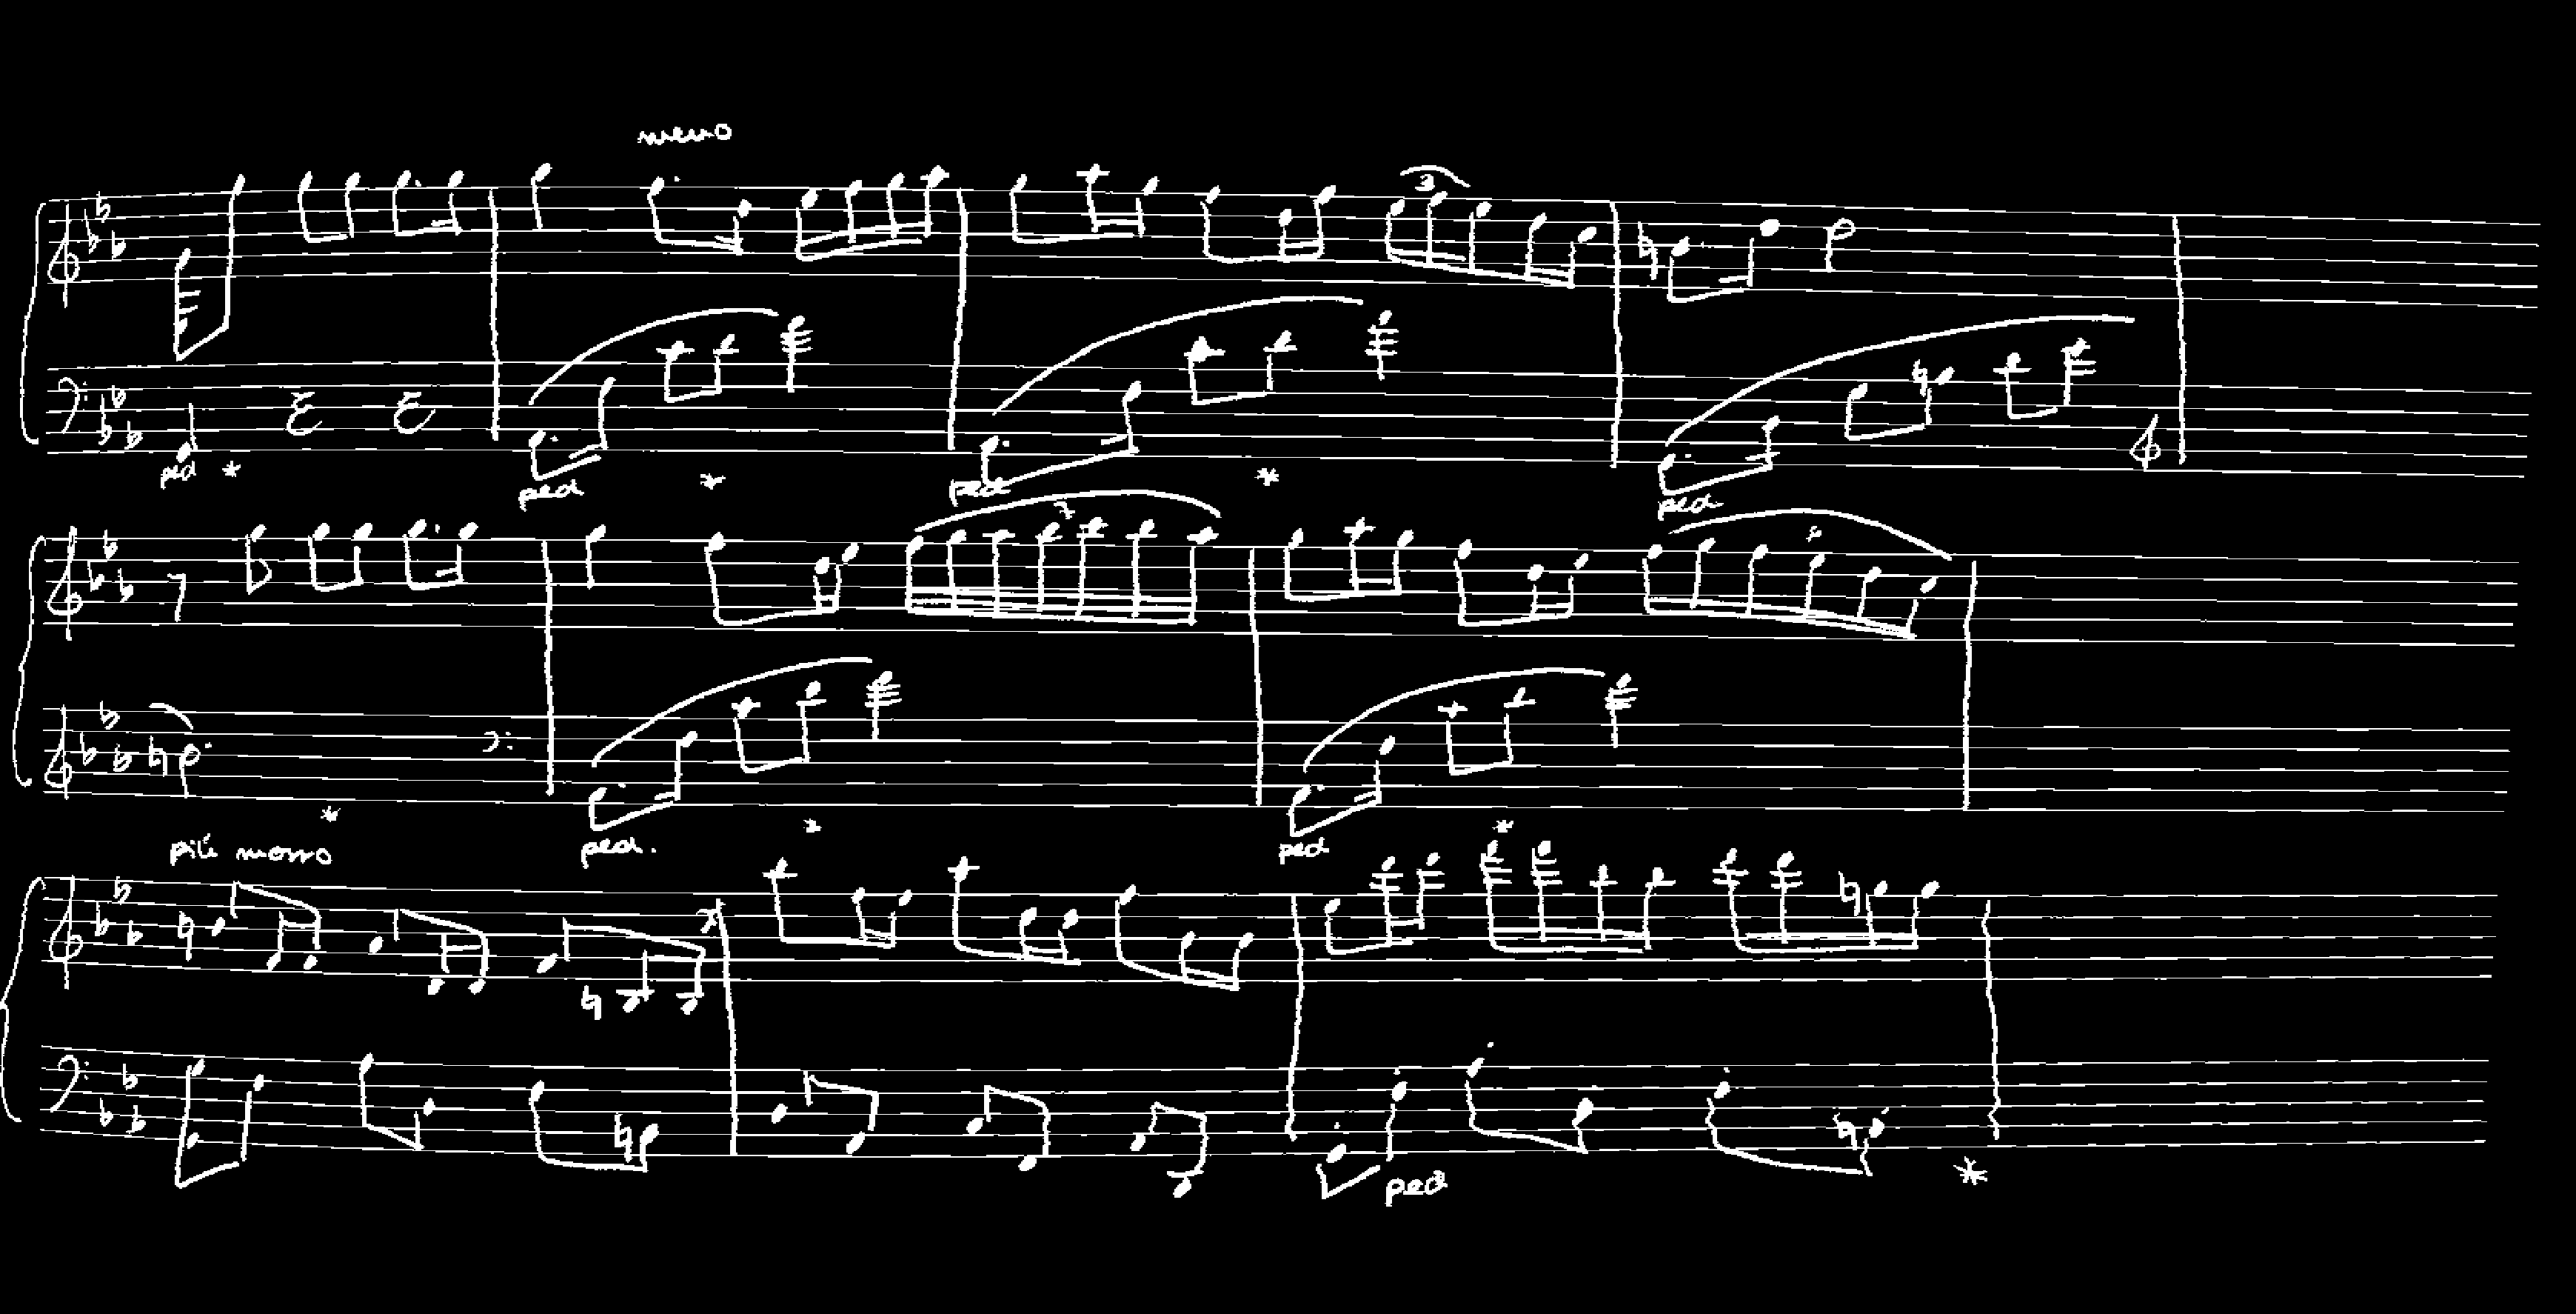 meno
3
ped * ped * ped * ped
7 6
* ped. * ped *
più mosso
ped *